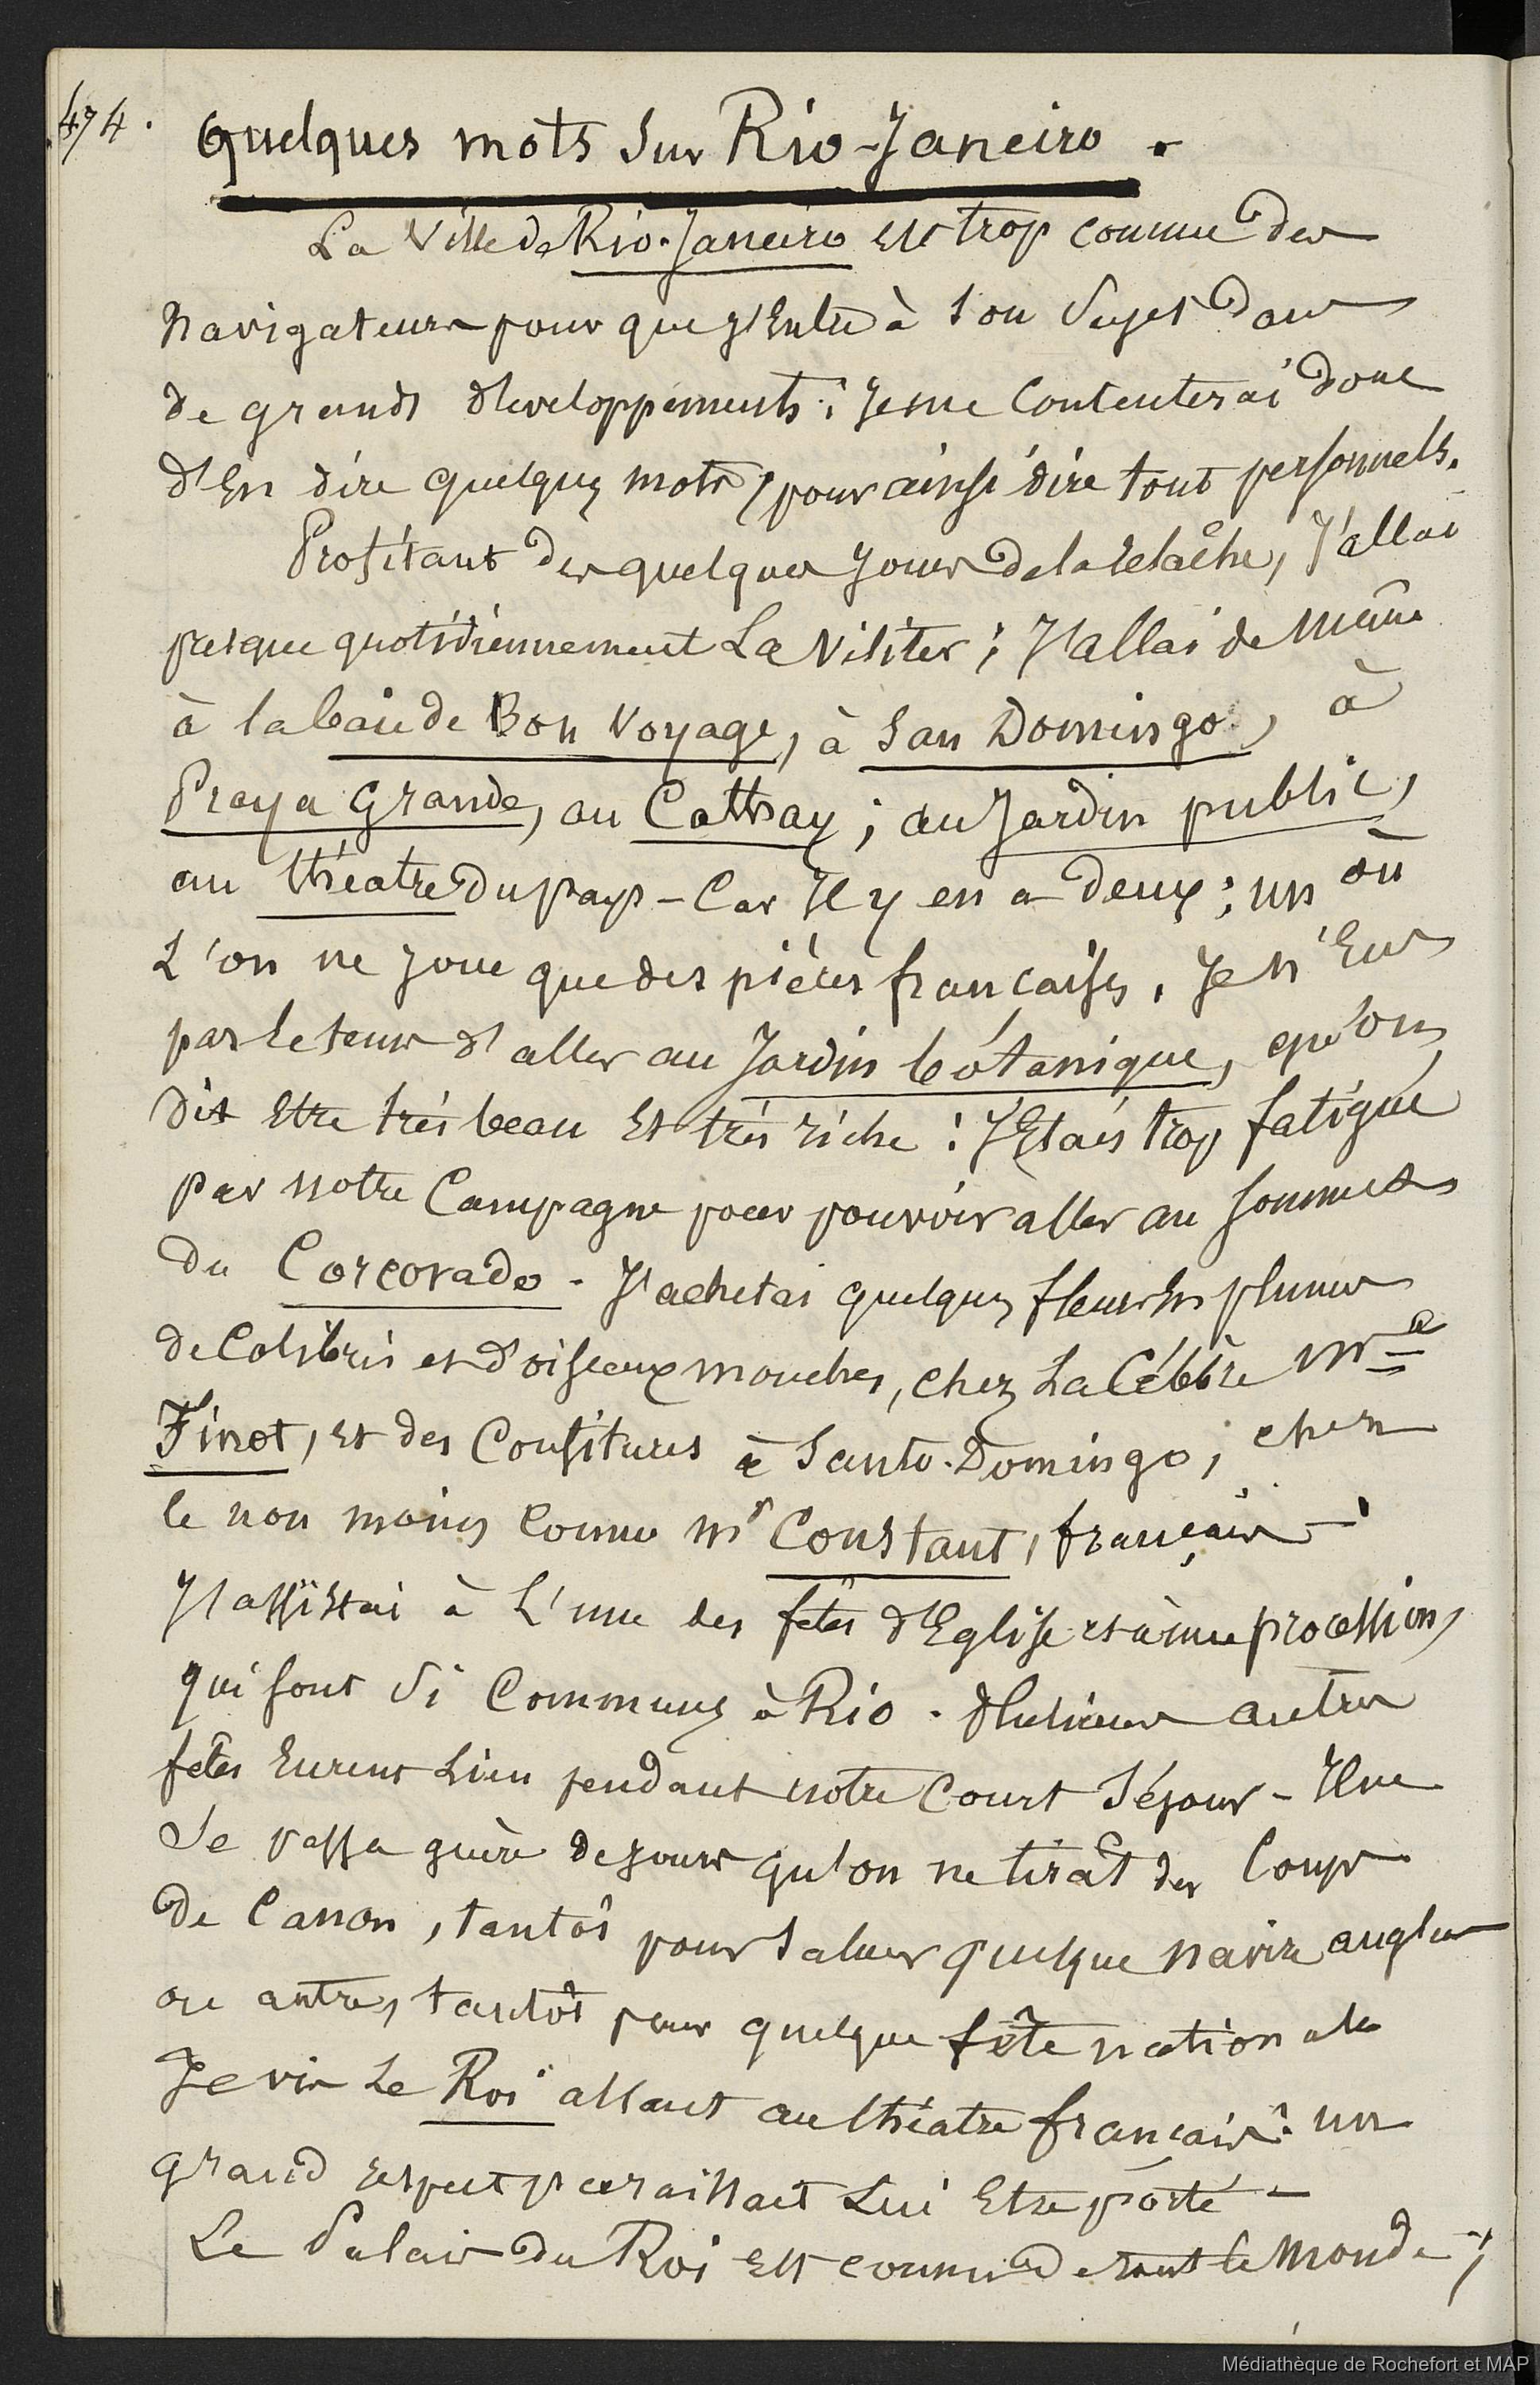 474.
Quelques mots sur Rio-Janeiro.
La Ville de Rio-Janeiro est trop connue des
navigateurs pour que j'entre à son sujet dans
de grands développements ; je me contenterai donc
d'en dire quelques mots, pour ainsi dire tout personnels.
Profitant des quelques jours de la relâche, j'allai
presque quotidiennement la visiter ; j'allai de même
à la baie de Bon Voyage, à San Domingo, à
Praya Grande, au Cattray ; au Jardin public,
au théâtre du pays - Car il y en a deux ; un où
l'on ne joue que des pièces françaises. Je n'eus
pas le tems d'aller au Jardin botanique, qu'on
dit être très beau et très riche : j'étais trop fatigué
par notre Campagne pour pouvoir aller au sommet
du Corcovado - J'achetai quelques fleurs en plumes
de Colibris et d'oiseaux mouches, chez la Célèbre Mme
Finot, et des Confitures à Santo-Domingo, chez
le non moins connu Mr Constant, français -
J'assistai à l'une des fêtes d'Eglise et à une procession,
qui sont si Communes à Rio. Plusieurs autres
fêtes eurent lieu pendant notre Court séjour - Il ne
se passa guère de jours qu'on ne tirât des Coups
de Canon, tantôt pour saluer quelque navire anglais
ou autre, tantôt pour quelque fête nationale
Je vis le Roi allant au théâtre français : un
grand respect paraissait lui être porté -
Le Palais du Roi est connu de tout le monde ;
Médiathèque de Rochefort et MAP